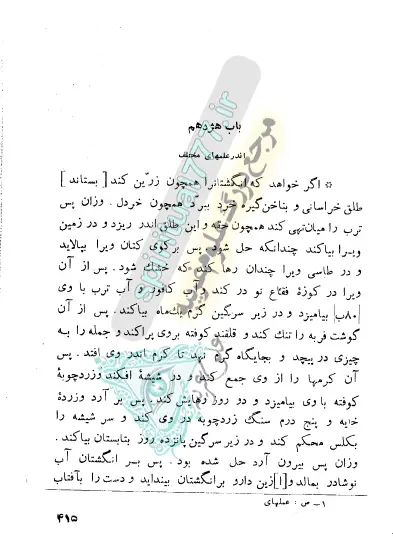 باب هژدهم
اندر عملهای مختلف
* اگر خواهد که انگشتانرا همچون زرّین کند [بستاند]
طلق خراسانی و بناخن‌گیره خرد ببرّد همچون خردل. وزان پس
ترب را میان‌تهی کند همچون حقه و این طلق اندر ریزد و در زمین
ویرا بیاکند چندانکه حل شود. پس بر گوی کتان ویرا بپالاید
و در طاسی ویرا چندان رها کند که خشك شود. پس از آن
ویرا در کوزهٔ فقاع نو در کند و آب کافور و آب ترب با وی
[۸۰ب] بیامیزد و در زیر سرگین گرم یك‌ماه بیاکند. پس از آن
گوشت فربه را تنك کند و قلقند کوفته بروی پراکند و جمله را به
چیزی در پیچد و بجایگاه گرم نهد تا کرم اندر وی افتد. پس
آن کرمها را از وی جمع کند و در شیشهٔ افکند وزردچوبهٔ
کوفته با وی بیامیزد و دو روز رهایش کند. پس بر آرد وزردهٔ
خایه و پنج درم سنگ زردچوبه در وی کند و سر شیشه را
بکلس محکم کند و در زیر سرگین پانزده روز بتابستان بیاکند.
وزان پس بیرون آرد حل شده بود. پس بر انگشتان آب
نوشادر بمالد و[ا]زین دارو برانگشتان بینداید و دست را بآفتاب
۱ــ ص : عملهای
۴۱۵